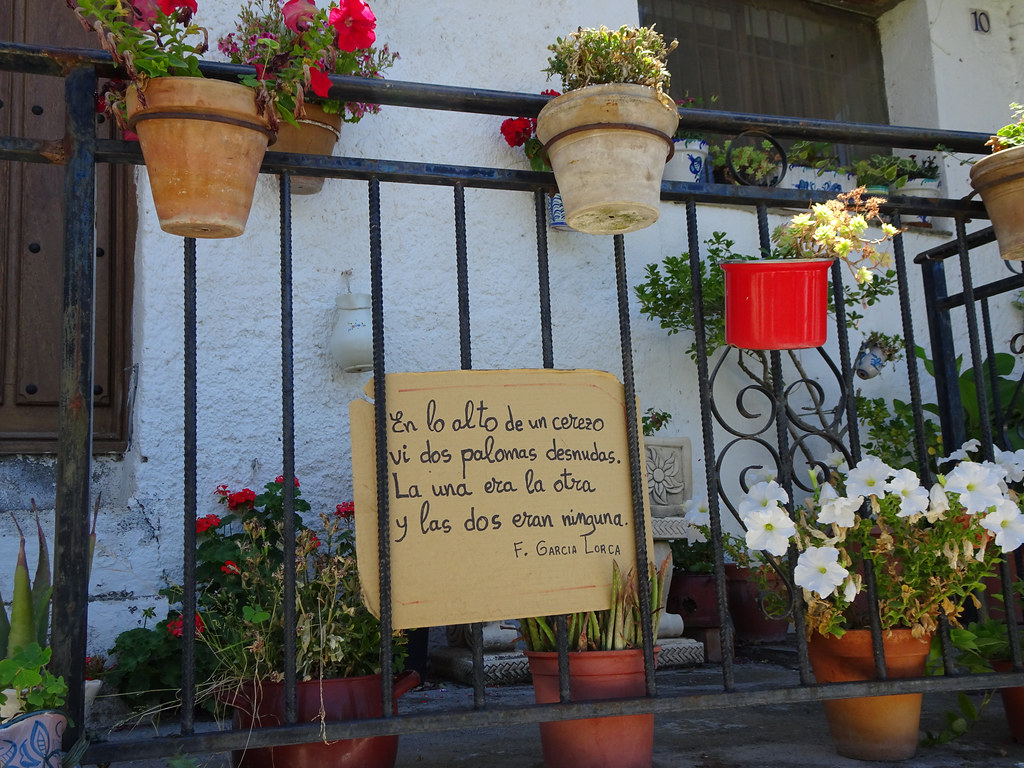 10
En lo alto de un cerezo
vi dos palomas desnudas.
La una era la otra
y las dos eran ninguna.
F. GARCIA LORCA